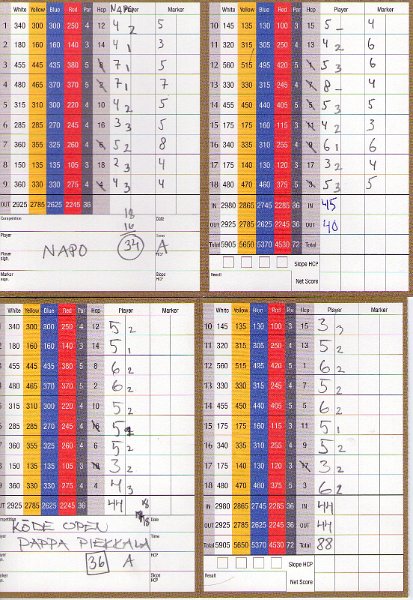 White Yellow Blue Red Par Hcp NAPO Marker
1 340 300 300 250 4 12 4 2 5
2 180 160 160 140 3 14 4 1 3
3 455 445 435 380 5 7 1 5
4 480 465 370 5 7 1 7
5 315 310 300 220 4 10 4 2 5
6 285 285 270 245 4 3 3 5
7 360 355 325 260 4 5 2 8
8 150 135 135 105 3 18 2 3 4
9 360 330 330 275 4 4 3 4
OUT 2925 2785 2625 2245 36
18
16
Competition Date
Player NAPO 34 A HCP
Player sign.
Marker sign.
White Yellow Blue Red Par Hcp Player Marker
10 145 135 130 100 3 15 5 – 4
11 320 315 305 250 4 13 4 2 6
12 560 515 495 420 5 5 3 6
13 330 330 315 245 4 8 – 4
14 455 450 440 405 5 5 3 5
15 175 160 155 115 3 4 2 3
16 340 335 310 255 4 6 1 6
17 175 140 130 120 3 17 3 2 4
18 480 470 460 375 5 5 3 5
IN 2980 2865 2745 2285 36 IN 45
OUT 2925 2785 2625 2245 36 OUT 40
Total 5905 5650 5370 4530 72 Total
Slope HCP
Result
Net Score
White Yellow Blue Red Par Hcp Player Marker
340 300 300 250 4 12 5 2
180 160 160 140 3 14 5 1
455 445 435 380 5 8 6 2
480 465 370 5 2 6 2
315 310 300 220 4 10 5 2
285 285 270 245 4 5
360 355 325 260 4 6 5 2
150 135 135 105 3 3 2
360 330 330 275 4 4 4 3
2925 2785 2625 2245 36 44 18
18
KÖDE OPEN
PAPPA PIEKKALA
36 A HCP
White Yellow Blue Red Par Hcp Player Marker
10 145 135 130 100 3 15 3 3
11 320 315 305 250 4 13 5 2
12 560 515 495 420 5 1 6 2
13 330 330 315 245 4 7 5 2
14 455 450 440 405 5 5 6 2
15 175 160 155 115 3 11 5 1
16 340 335 310 255 4 9 5 2
17 175 140 130 120 3 3 2
18 480 470 460 375 5 3 6 2
IN 2980 2865 2745 2285 36 IN 44
OUT 2925 2785 2625 2245 36 OUT 44
Total 5905 5650 5370 4530 72 Total 88
Slope HCP
Result
Net Score